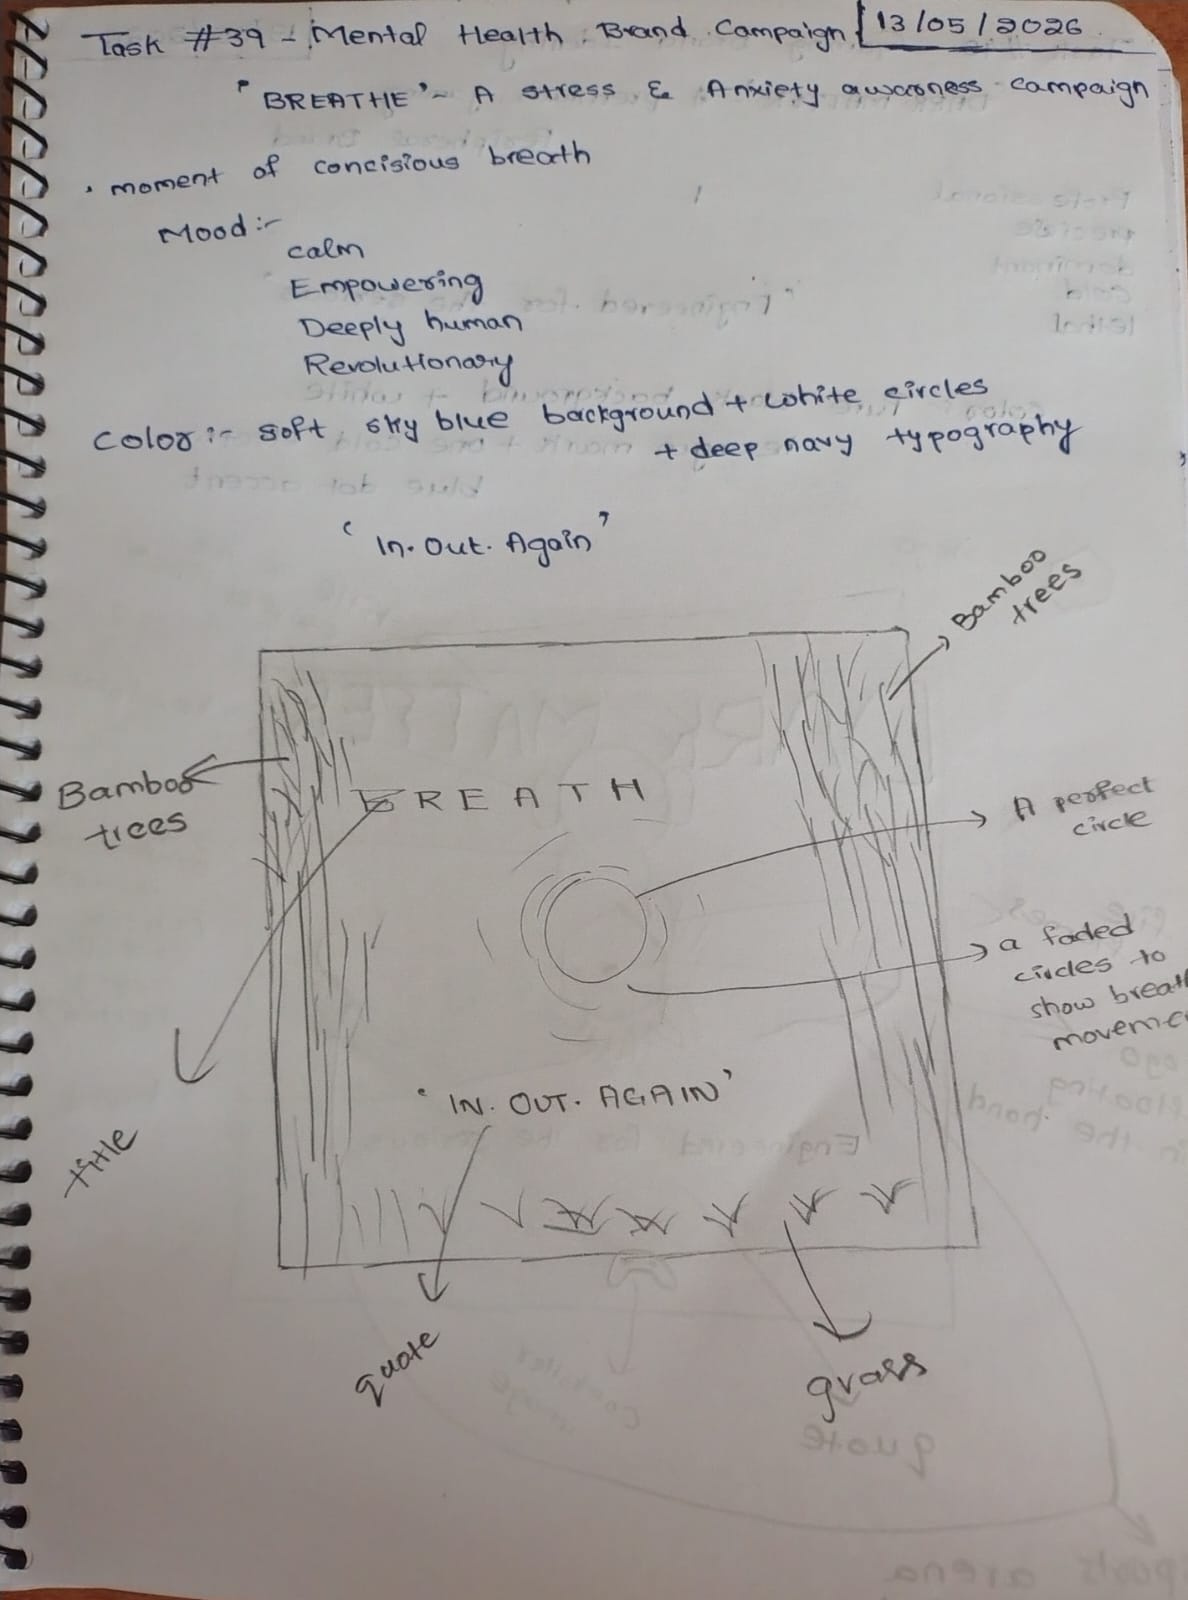 Task #39 - Mental Health Brand Campaign 13/05/2026
'BREATHE' ~ A stress & Anxiety awareness campaign
. moment of concisious breath
Mood :-
calm
Empowering
Deeply human
Revolutionary
Color :- soft sky blue background + white circles
+ deep navy typography
'In. Out. Again'
Bamboo
trees
Bamboo
trees
BREATH
A perfect
circle
a faded
circles to
show breath
'IN. OUT. AGAIN'
title
quote
grass